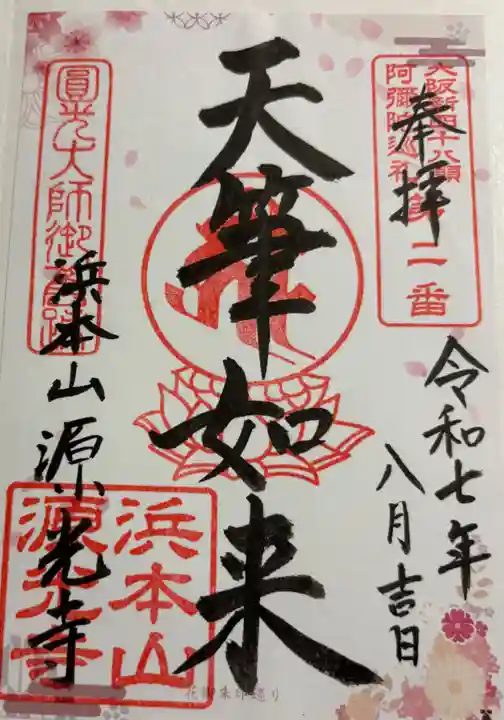 奉拝
大阪新四十八願
阿彌陀巡礼
第二番
令和七年
八月吉日
天筆如来
圓光大師御舊跡
浜本山源光寺
浜本山
源光寺
花御朱印巡り